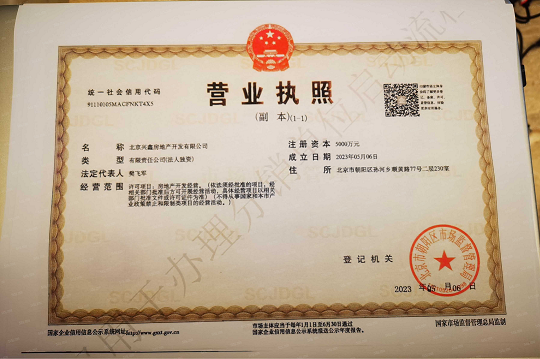 统一社会信用代码
91110105MACFNKT4X5
营业执照
(副 本)(1-1)
扫描市场主体身
份码了解更多登
记、备案、许可、
监管信息，体验
更多应用服务。
名称 北京兴鑫房地产开发有限公司
类型 有限责任公司(法人独资)
法定代表人 樊飞军
经营范围 许可项目：房地产开发经营。（依法须经批准的项目，经
相关部门批准后方可开展经营活动，具体经营项目以相关
部门批准文件或许可证件为准）（不得从事国家和本市产
业政策禁止和限制类项目的经营活动。）
注册资本 5000万元
成立日期 2023年03月06日
住所 北京市朝阳区孙河乡顺黄路77号二层230室
登记机关
北京市朝阳区市场监督管理局
2023 年 03 月 06 日
国家企业信用信息公示系统网址http://www.gsxt.gov.cn
市场主体应当于每年1月1日至6月30日通过
国家企业信用信息公示系统报送公示年度报告。
国家市场监督管理总局监制
SCJDGL